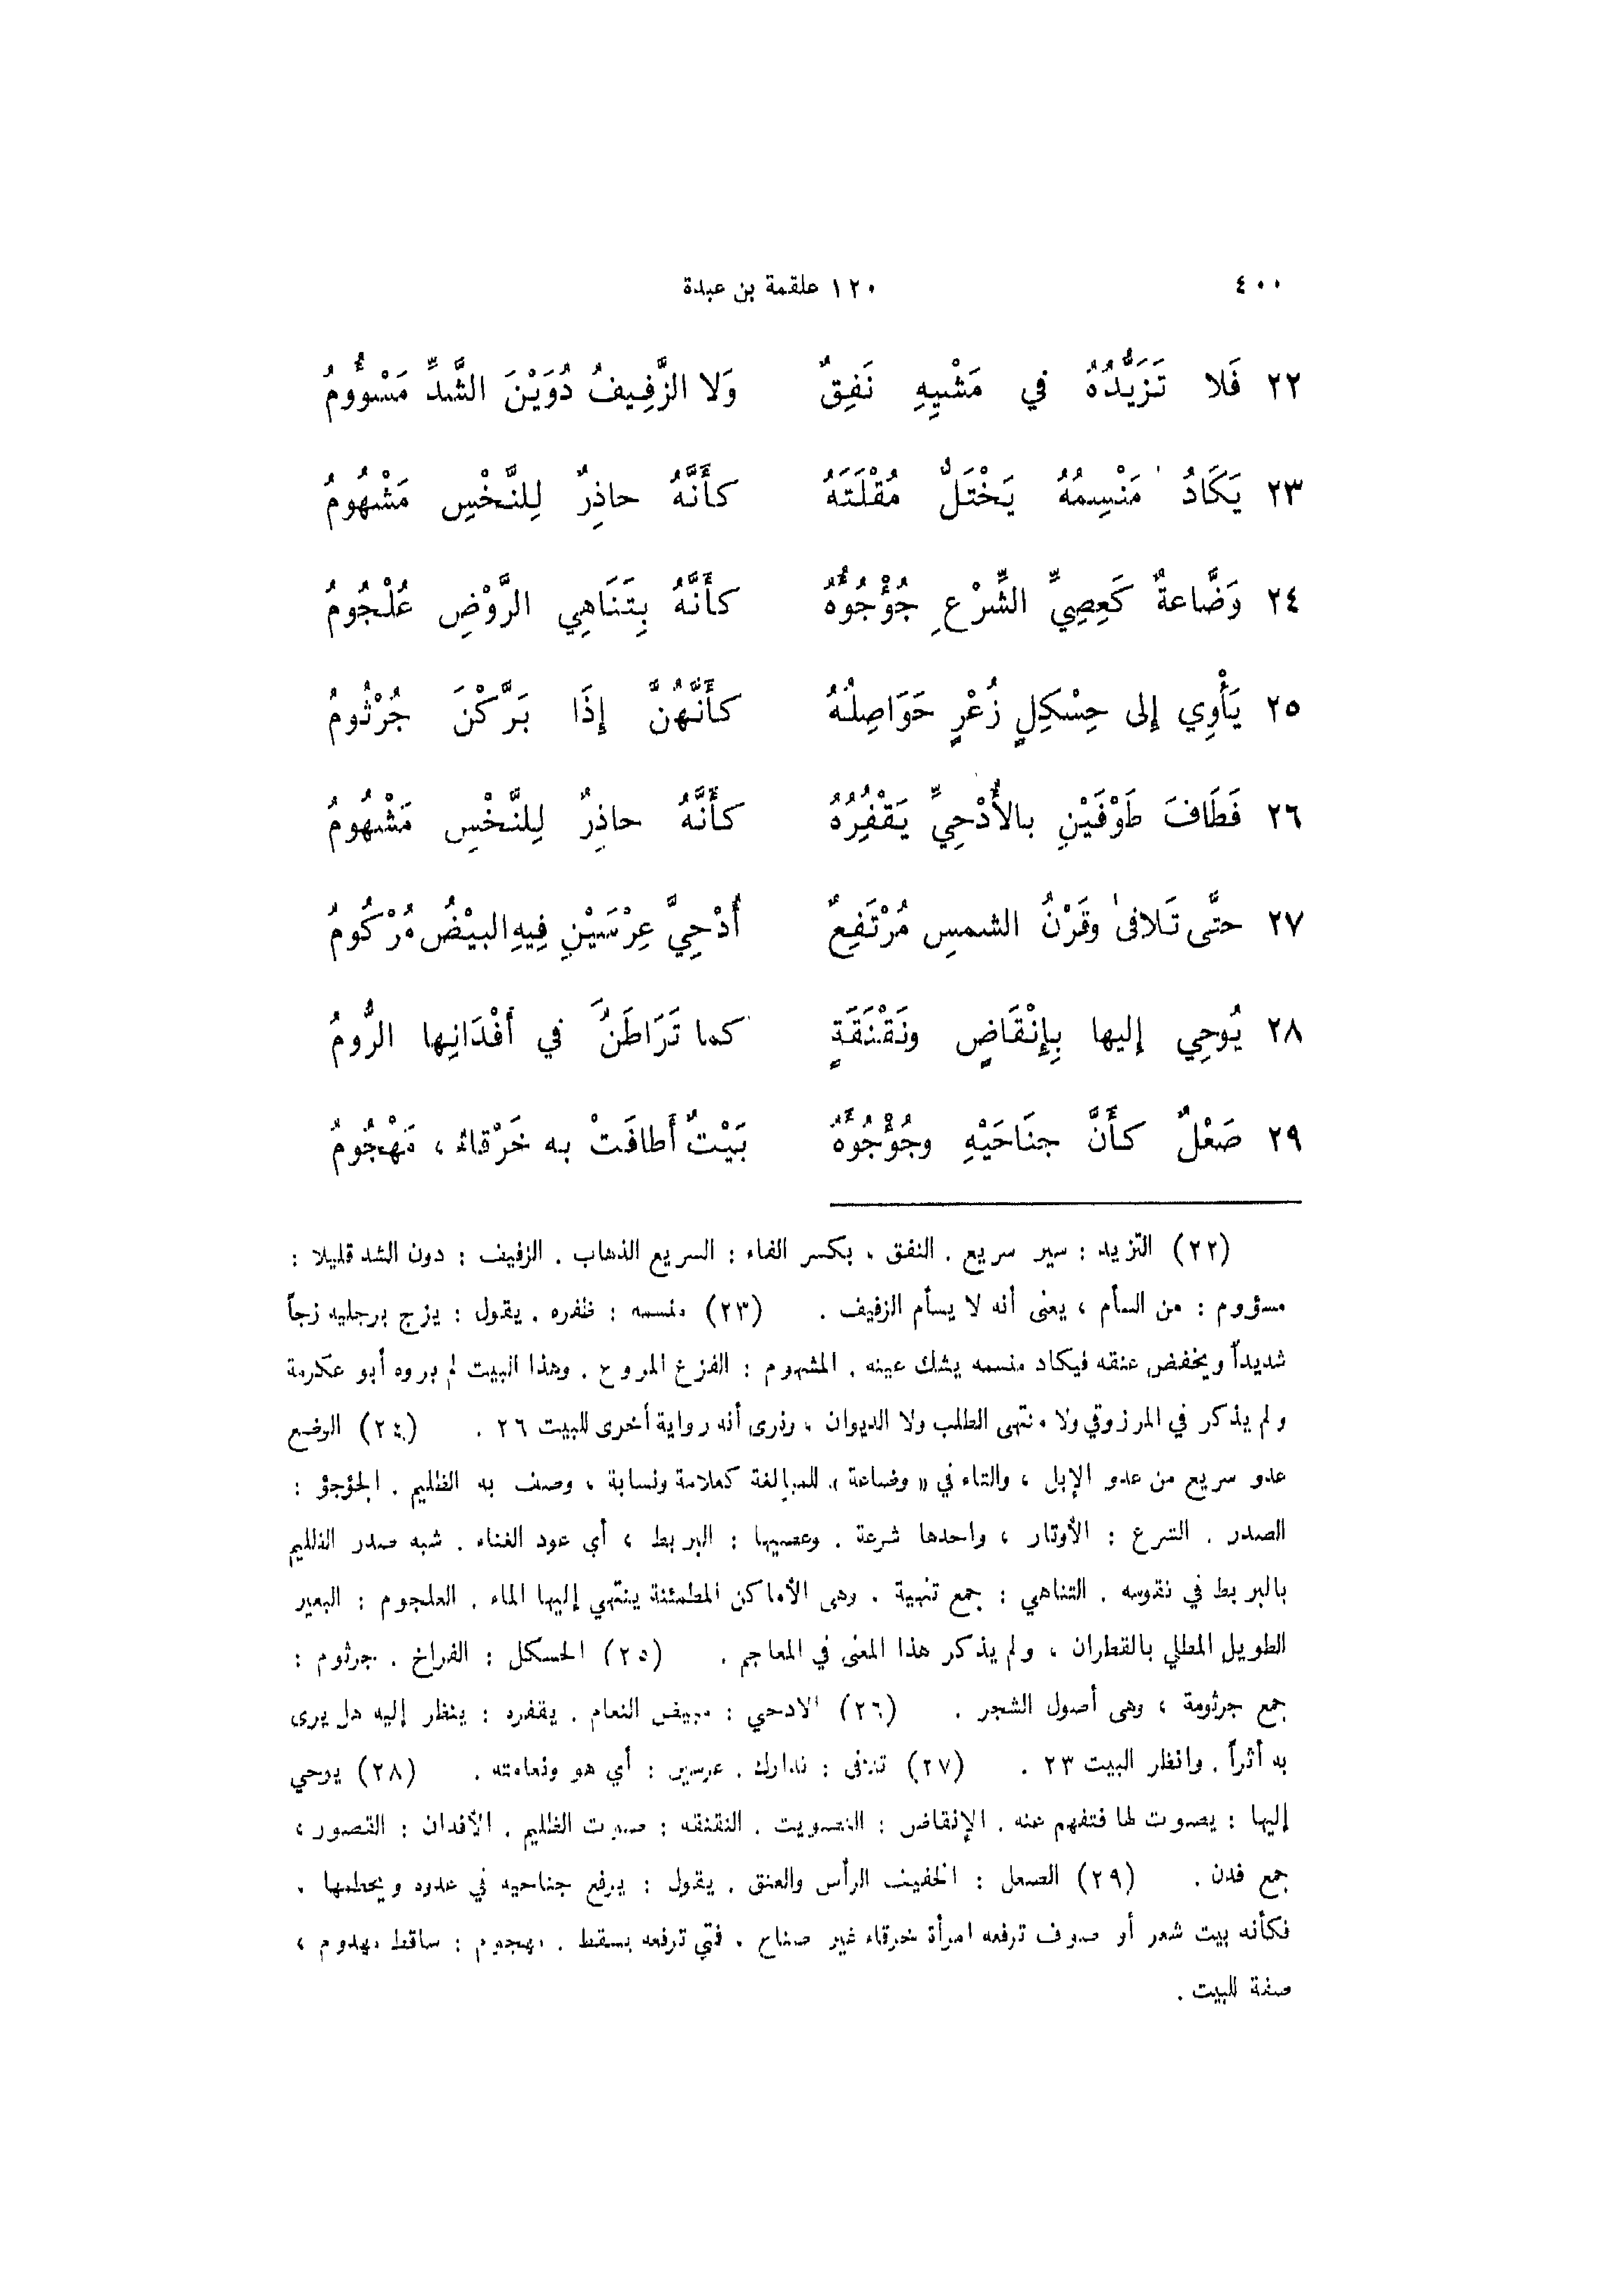 ٤٠٠ ١٢٠ علقمة بن عبدة
٢٢ فَلا تَزَيُّدُهُ في مَشْيِهِ نَفِقٌ وَلا الزَّفِيفُ دُوَيْنَ الشَّدِّ مَسْوُومُ
٢٣ يَكَادُ مَنْسِمُهُ يَخْتَلُّ مُقْلَتَهُ كأَنَّهُ حاذِرٌ لِلنَّخْسِ مَشْهُومُ
٢٤ وَضَّاعةٌ كَعِصِيِّ الشِّرْعِ جُؤْجُوُهُ كأَنَّهُ بِتَنَاهِي الرَّوْضِ عُلْجُومُ
٢٥ يَأْوِي إلى حِسْكِلٍ زُعْرٍ حَوَاصِلُهُ كأَنَّهُنَّ إِذَا بَرَّكْنَ جُرْثُومُ
٢٦ فَطَافَ طَوْفَيْنِ بالأُدْحِيِّ يَقْفُرُهُ كأَنَّهُ حاذِرٌ لِلنَّخْسِ مَشْهُومُ
٢٧ حتَّى تَلافىٰ وقَرْنُ الشمسِ مُرْتَفِعٌ أُدْحِيَّ عِرْسَيْنِ فِيهِ البيْضُ مُرْكُومُ
٢٨ يُوحِي إليها بِإِنْقَاضٍ ونَقْنَقَةٍ كما تَرَاطَنُ في أَفْدَانِها الرُّومُ
٢٩ صَعْلٌ كأَنَّ جنَاحَيْهِ وجُؤْجُوَهُ بَيْتٌ أَطافَتْ به خَرْقاءُ، مَهْجُومُ
(٢٢) التزيد : سير سريع . النفق ، بكسر الفاء : السريع الذهاب . الزفيف : دون الشد قليلا :
مسؤوم : من السأم ، يعنى أنه لا يسأم الزفيف . (٢٣) منسمه : ظفره . يقول : يزج برجليه زجاً
شديداً ويخفض عنقه فيكاد منسمه يشك عينه . المشهوم : الفزع المروع . وهذا البيت لم يروه أبو عكرمة
ولم يذكر في المرزوقي ولا منتهى الطلب ولا الديوان ، ونرى أنه رواية أخرى للبيت ٢٦ . (٢٤) الوضع
عدو سريع من عدو الإبل ، والتاء في « وضاعة » للمبالغة كعلامة ونسابة ، وصف به الظليم . الجؤجؤ :
الصدر . الشرع : الأوتار ، واحدها شرعة . وعصيها : البربط ، أي عود الغناء . شبه صدر الظليم
بالبربط في نقوسه . التناهي : جمع تنهية . وهى الأماكن المطمئنة ينتهي إليها الماء . العلجوم : البعير
الطويل المطلي بالقطران ، ولم يذكر هذا المعنى في المعاجم . (٢٥) الحسكل : الفراخ . جرثوم :
جمع جرثومة ، وهى أصول الشجر . (٢٦) الادحي : مبيض النعام . يقفره : ينظر إليه هل يرى
به أثراً . وانظر البيت ٢٣ . (٢٧) تلافى : تدارك . عرسين : أي هو ونعامته . (٢٨) يوحي
إليها : يصوت لها فتفهم عنه . الإنقاض : التصويت . النقنقه : صوت الظليم . الأفدان : القصور ،
جمع فدن . (٢٩) الصعل : الخفيف الرأس والعنق . يقول : يرفع جناحيه في عدوه ويحطمها .
فكأنه بيت شعر أو صوف ترفعه امرأة خرقاء غير صناع . فتى ترفعه يسقط . مهجوم : ساقط مهدوم ،
صفة للبيت .